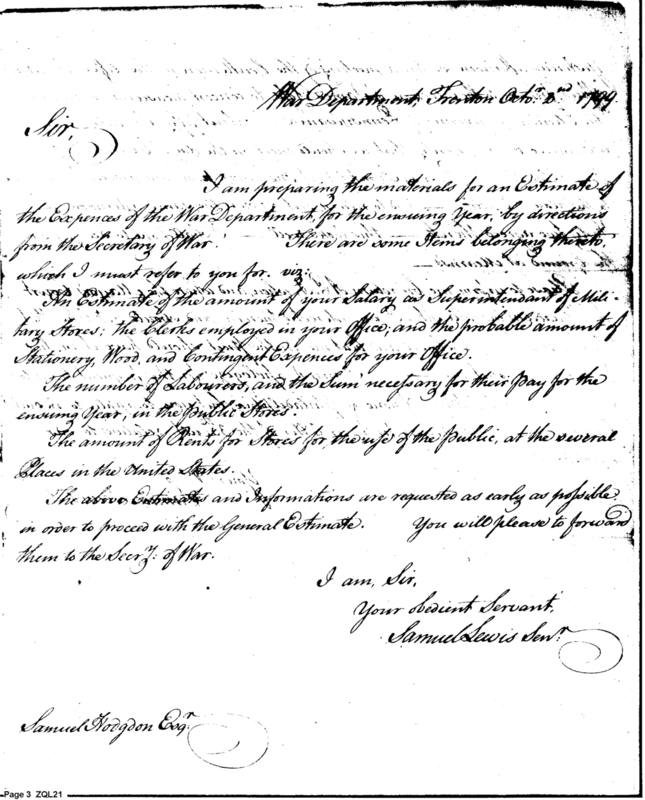 War Department, Trenton Octo.r 2nd 1799.
Sir,
I am preparing the materials for an Estimate of
the Expences of the War Department, for the ensuing Year, by directions
from the Secretary of War. There are some Items belonging thereto,
which I must refer to you for. viz:
An Estimate of the amount of your Salary as Superintendant of Mili-
tary Stores; the Clerks employed in your Office; and the probable amount of
Stationery, Wood, and Contingent Expences for your Office.
The number of Labourers, and the Sum necessary for their Pay for the
ensuing Year, in the public Stores.
The amount of Rents for Stores for the use of the Public, at the several
Places in the United States.
The above Estimates and Informations are requested as early as possible
in order to proceed with the General Estimate. You will please to forward
them to the Secr.y: of War.
I am, Sir,
Your obedient Servant,
Samuel Lewis Sen.r
Samuel Hodgdon Esq.r
Page 3 ZQL21